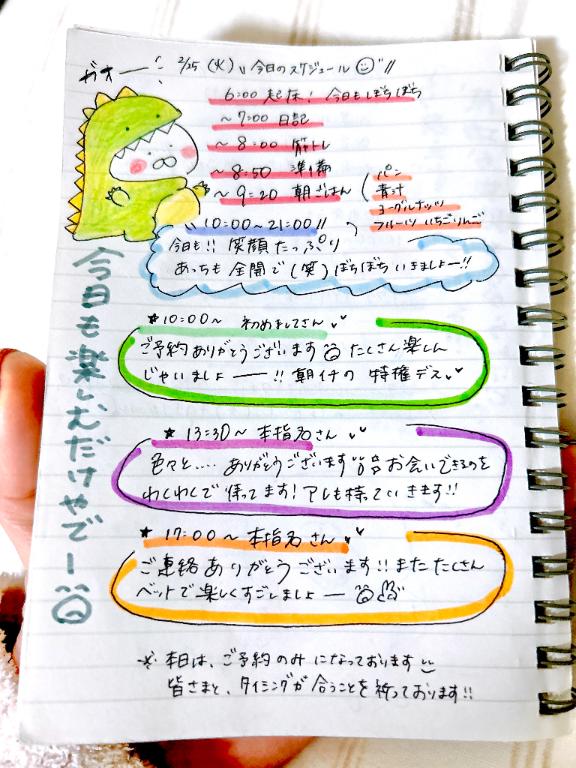 ガオー!!
2/25(火)、今日のスケジュール
6:00 起床! 今日もぼちぼち
~7:00 日記
~8:00 筋トレ
~8:50 準備
~9:20 朝ごはん
パン
青汁
ヨーグルナッツ
フルーツ いちごりんご
10:00~21:00!!
今日も!! 笑顔たっぷり
あっちも全開で(笑)ぼちぼちいきましょー!!
今日も楽しむだけやでー
★10:00~ 初めましてさん♥♥
ご予約ありがとうございます たくさん楽しん
じゃいましょーー!! 朝イチの特権デス♥♥
★13:30~ 本指名さん♥♥
色々と..... ありがとうございます お会いできるのを
わくわくで待ってます! アレも持っていきます!!
★17:00~ 本指名さん♥♥
ご連絡ありがとうございます!! またたくさん
ベットで楽しくすごしましょー
※ 本日は、ご予約のみになっております
皆さまと、タイミングが合うことを祈っております!!